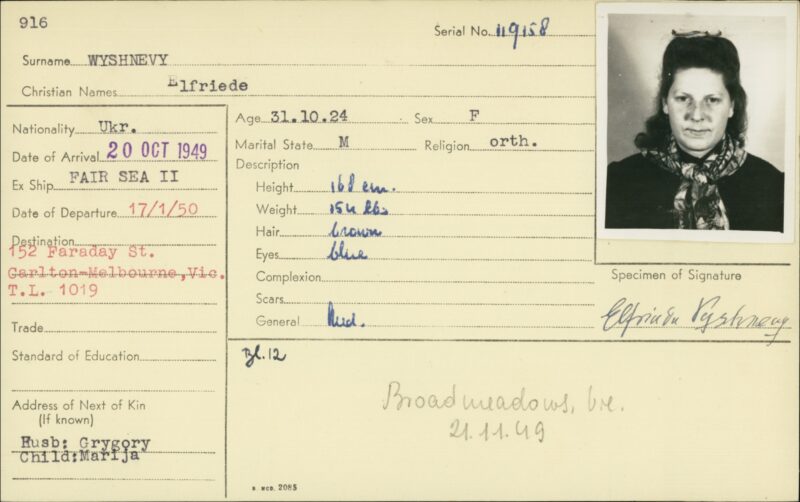 916
Serial No. 119158
Surname WYSHNEVY
Christian Names Elfriede
Nationality Ukr.
Date of Arrival 20 OCT 1949
Ex Ship FAIR SEA II
Date of Departure 17/1/50
Destination
152 Faraday St.
Garlton-Melbourne,Vic.
T.L. 1019
Trade
Standard of Education
Address of Next of Kin
(If known)
Husb: Grygory
Child:Marija
Age 31.10.24 Sex F
Marital State M Religion orth.
Description
Height 168 cm.
Weight 154 lbs
Hair brown
Eyes blue
Complexion
Scars
General Med.
Specimen of Signature
Bl.12
Broadmeadows, Vic.
21.11.49